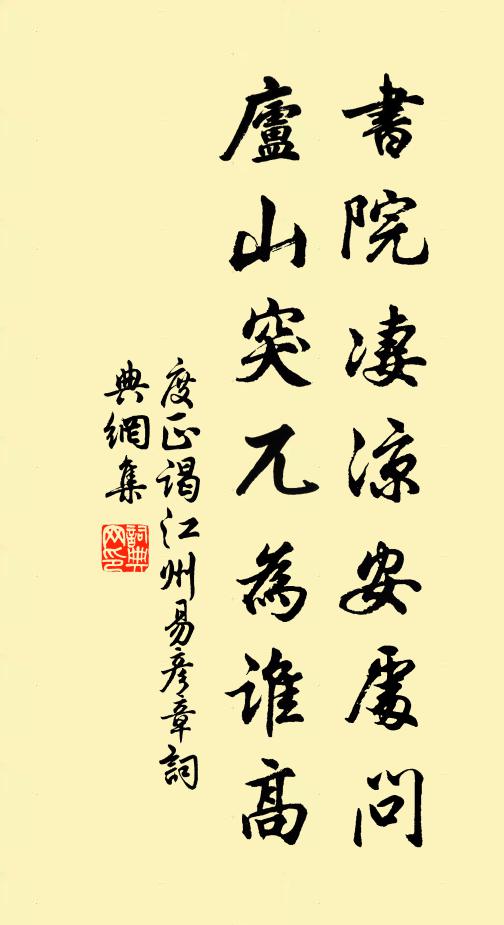 書院淒涼安處問
廬山突兀為誰高
度正謁江州易彥章詞
典網集
詞典
网印